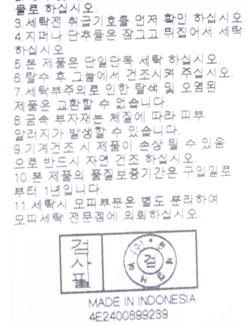 물로 하십시오
3.세탁전 취급기호를 먼저 확인 하십시오
4.지퍼나 단추들은 잠그고 뒤집어서 세탁
하십시오
5.본 제품은 단일단독 세탁 하십시오.
6.탈수 후 그늘에서 건조시켜 주십시오.
7.세탁부주의로 인한 탈색 및 오염된
제품은 교환할 수 없습니다.
8.금속 부자재는 체질에 따라 피부
알러지가 발생할 수 있습니다.
9.기계건조 시 제품이 손상 될 수 있음
으로 반드시 자연 건조 하십시오.
10.본 제품의 품질보증기간은 구입일로
부터 1년입니다.
11.세탁시 모피부분은 별도 분리하여
모피세탁 전문점에 의뢰하십시오.
검사표
검
MADE IN INDONESIA
4E2400899239